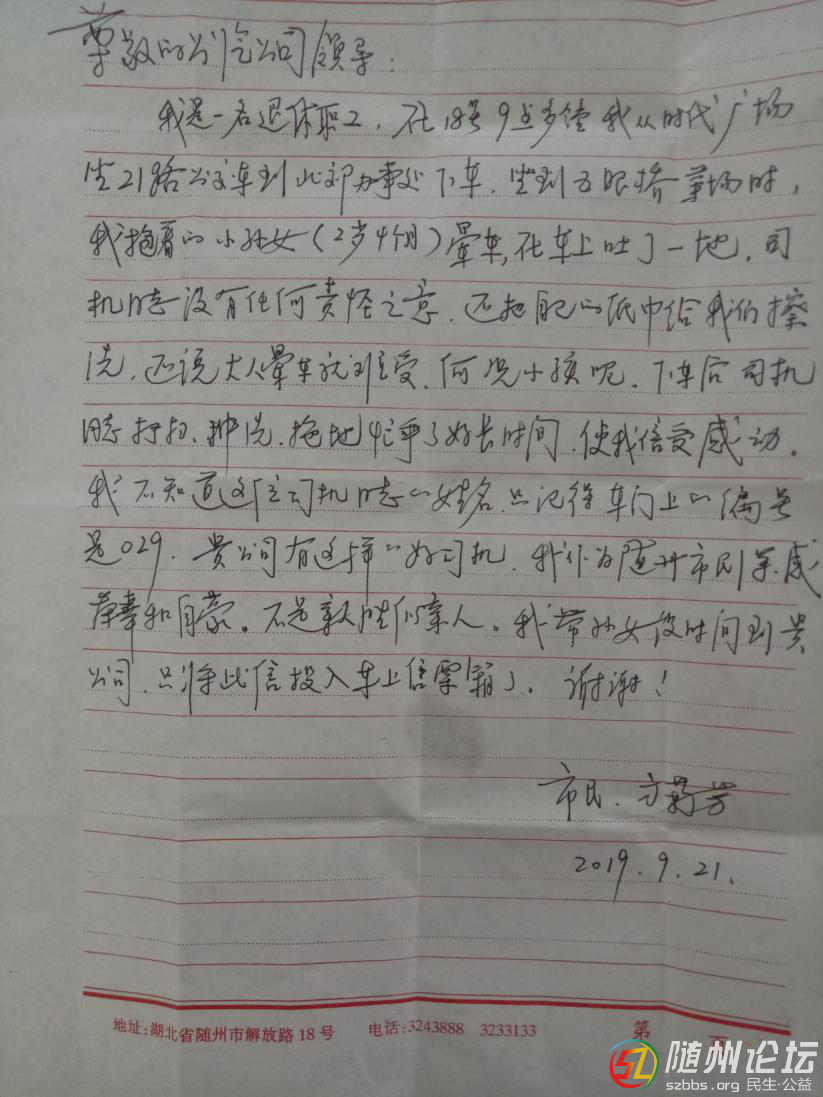 尊敬的公汽公司领导:
我是一名退休职工,在18号9点多钟我从时代广场
坐21路公交车到北郊办事处下车,坐到五眼桥菜场时,
我抱着的小孙女(2岁4个月)晕车,在车上吐了一地,司
机同志没有任何责怪之意,还把自己的纸巾给我们擦
洗,还说大人晕车就难受,何况小孩呢,下车后司机
同志打扫、冲洗、拖地忙乎了好长时间,使我倍受感动。
我不知道这位司机同志的姓名,只记得车门上的编号
是029,贵公司有这样的好司机,我作为随州市民深感
荣幸和自豪。不是亲人胜似亲人。我带孙女没时间到贵
公司,只将此信投入车上信票箱了。谢谢!
市民、方菊芳
2019.9.21.
地址:湖北省随州市解放路18号 电话:3243888 3233133 第 页
随州论坛
szbbs.org 民生·公益